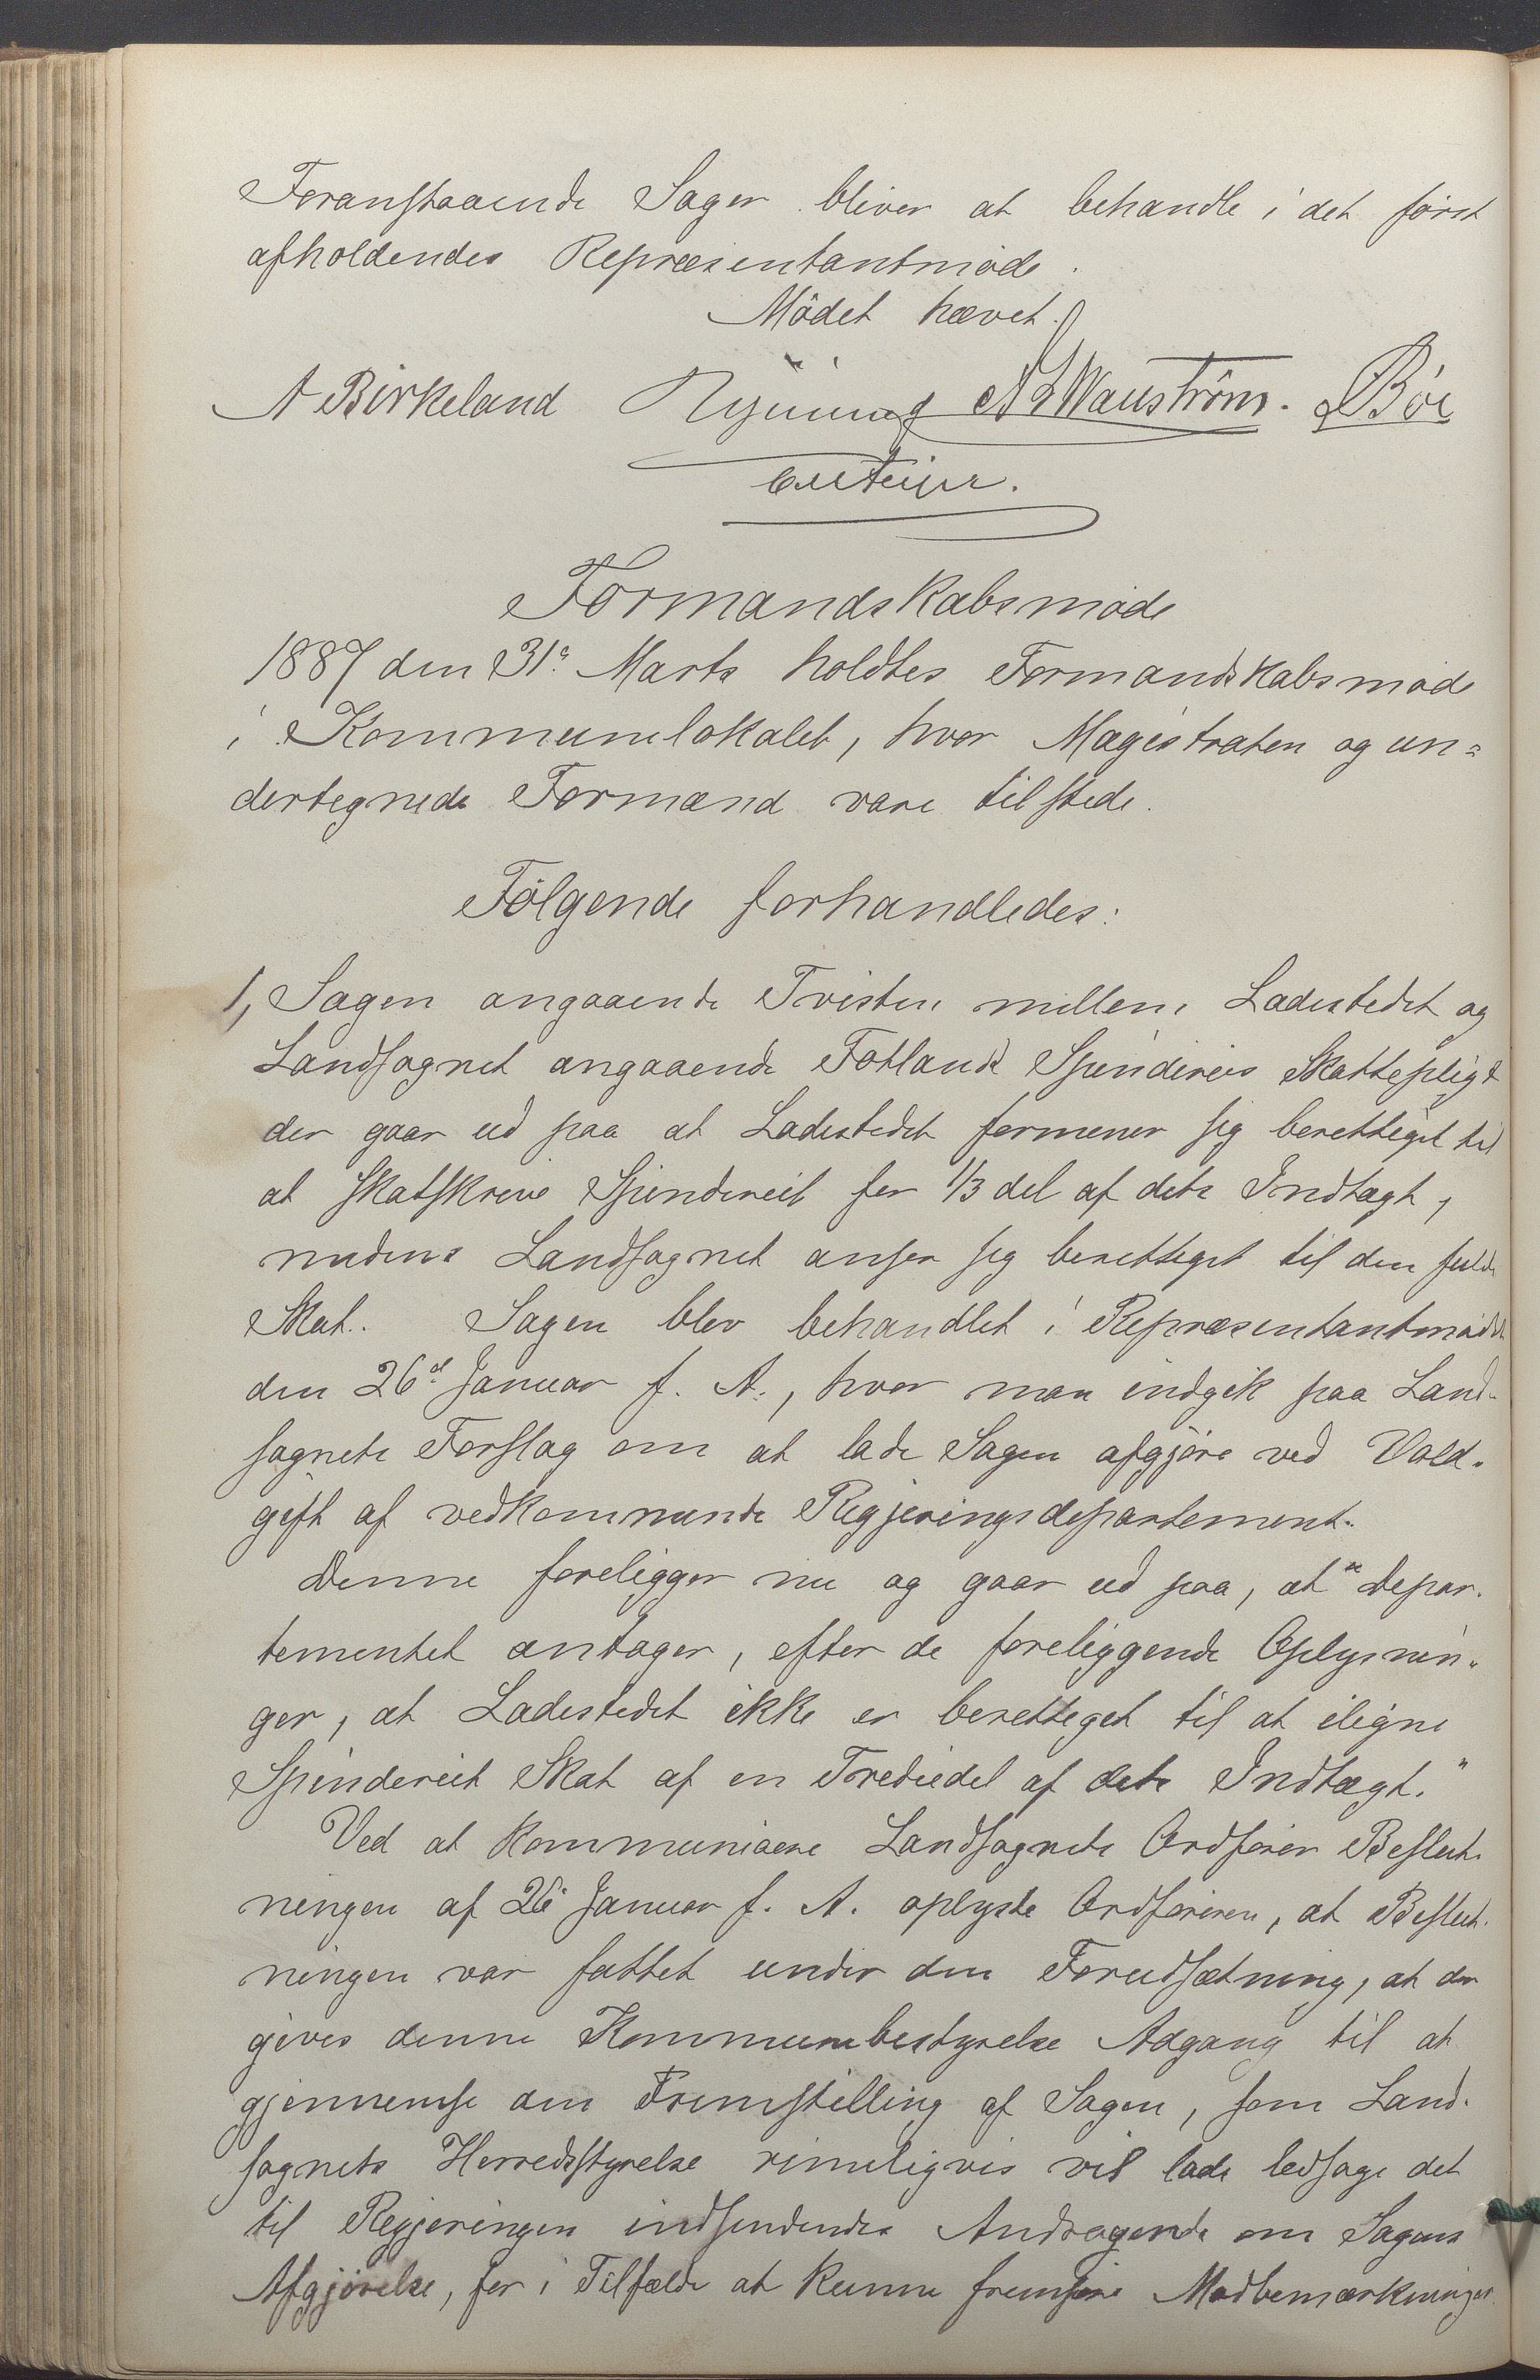 Foranstaaende Sager bliver at behandle i det først
afholdendes Repræsentantmøde.
Mødet hævet.
A Birkeland A Wanström. Bøe
Formandskabsmøde
1887 den 31te Marts holdtes Formandskabsmøde
i Kommunelokalet, hvor Magistraten og un=
dertegnede Formænd vare tilstede.
Følgende forhandledes:
1, Sagen angaaende Tvisten mellem Ladestedet og
Landsognet angaaende Fotlands Spinderies Skattepligt
der gaar ud paa at Ladestedet formener sig berettiget til
at skatskrive Spinderiet for 1/3 del af dets Indtægt,
medens Landsognet anser sig berettiget til den fulde
Skat. Sagen blev behandlet i Repræsentantmødet
den 26de Januar f. A., hvor man indgik paa Land-
sognets Forslag om at lade Sagen afgjøre ved Vold-
gift af vedkommende Regjeringsdepartement.
Denne foreligger nu og gaar ud paa, at "Depar-
tementet antager, efter de foreliggende Oplysnin-
ger, at Ladestedet ikke er berettiget til at iligne
Spinderiet Skat af en Trediedel af dets Indtægt."
Ved at kommunicere Landsognets Ordfører Beslut-
ningen af 26de Januar f. A. oplyste Ordføreren, at Beslut-
ningen var fattet under den Forudsætning, at der
gives denne Kommunebestyrelse Adgang til at
gjennemse den Fremstilling af Sagen, som Land-
sognets Herredsstyrelse rimeligvis vil lade ledsage det
til Regjeringen indsendendes Andragende om Sagens
Afgjørelse, for i Tilfælde at kunne fremføre Modbemærkninger